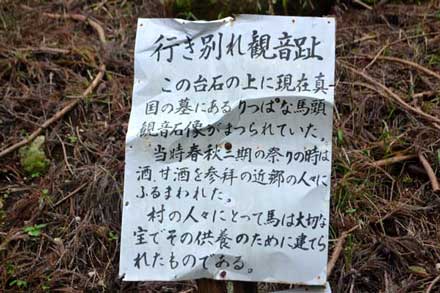 行き別れ観音趾
この台石の上に現在真
国の墓にあるりっぱな馬頭
観音石像がまつられていた。
当時春秋二期の祭りの時は
酒、甘酒を参拝の近郷の人々に
ふるまわれた。
村の人々にとって馬は大切な
宝でその供養のために建てら
れたものである。